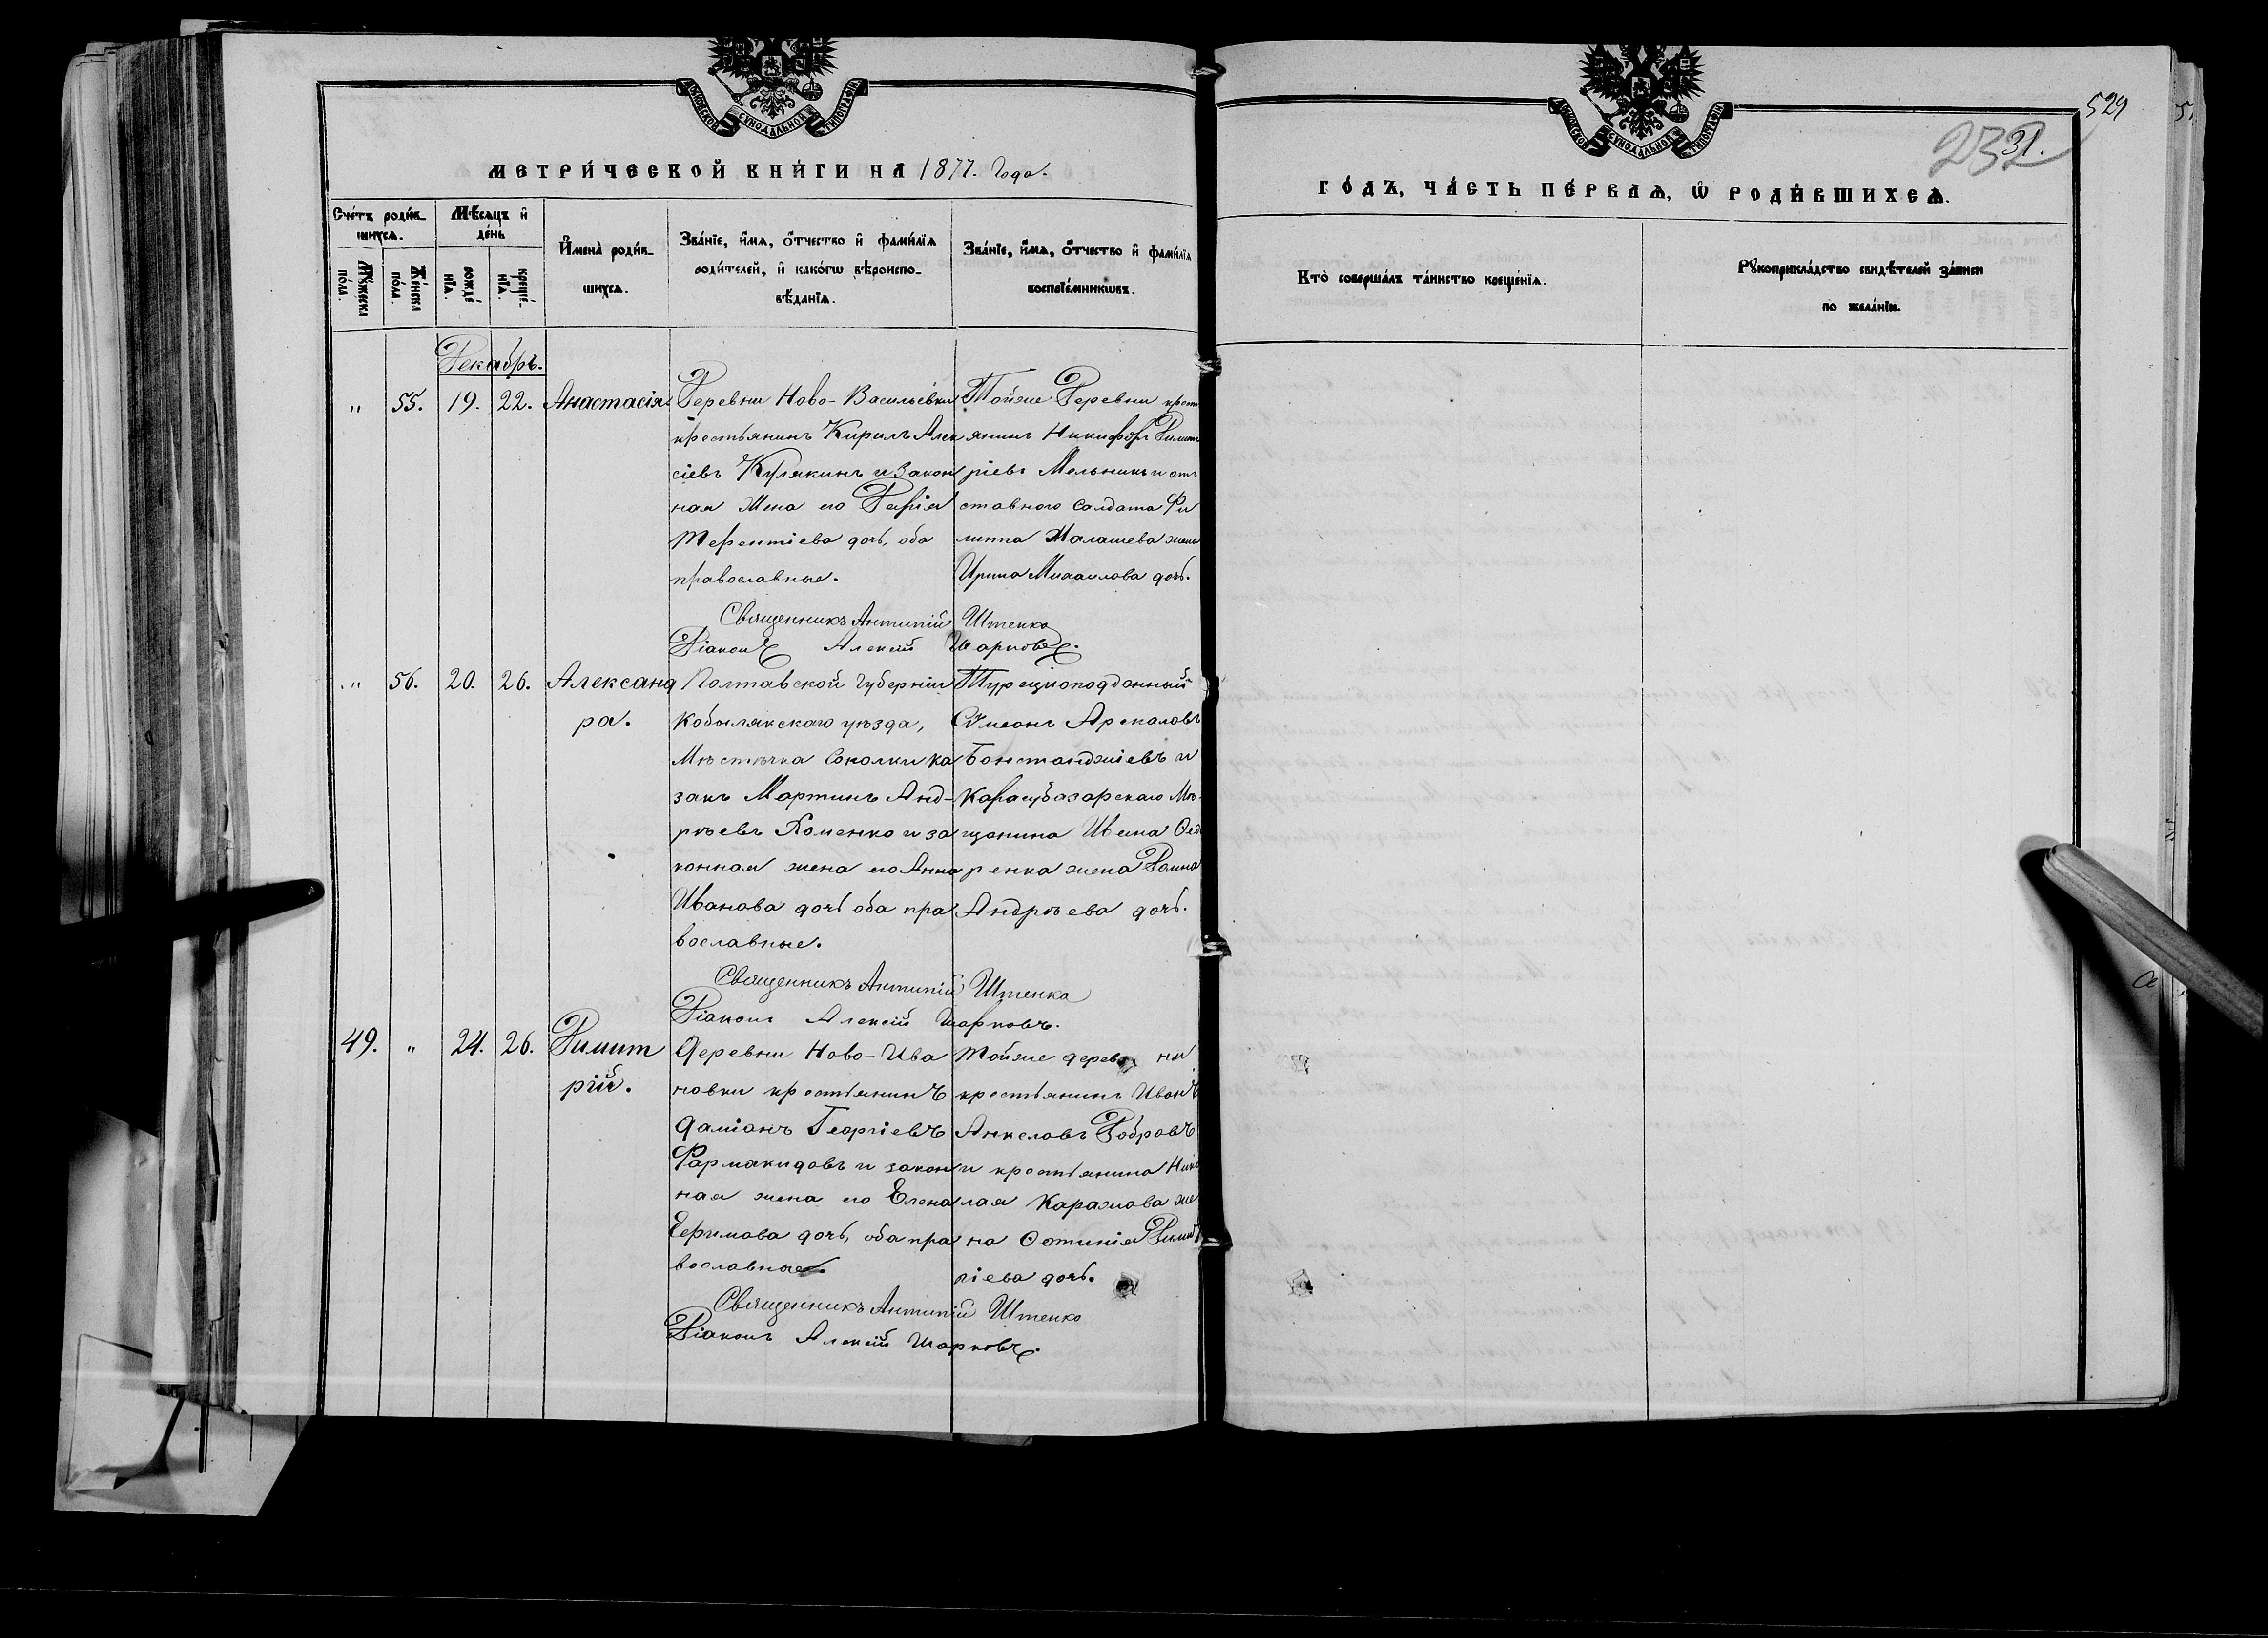 МОСКОВСКОЙ СѴНОДАЛЬНОЙ ТИПОГРАФІИ
МОСКОВСКОЙ СѴНОДАЛЬНОЙ ТИПОГРАФІИ
529
232
31.
МЕТРИ́ЧЕСКОЙ КНИ́ГИ НА 1877. Года.
ГО́ДЪ, ЧА́СТЬ ПЕ́РВАѦ, Ѡ РОДИ́ВШИХСѦ.
Сче́тъ роди́в-
шихсѧ.
Мꙋ́жеска по́ла.
Же́нска по́ла.
Мѣ́сѧцъ и҆ де́нь
рожде́нїѧ.
креще́нїѧ.
И҆мена̀ роди́в-
шихсѧ.
Зва́нїе, и҆́мѧ, ѻ҆́тчество и҆ фами́лїѧ
роди́телей, и҆ како́гѡ вѣроиспо-
вѣ́данїѧ.
Зва́нїе, и҆́мѧ, ѻ҆́тчество и҆ фами́лїѧ
воспрїе́мникѡвъ.
Кто̀ соверша́лъ та́инство креще́нїѧ.
Рꙋкоприкла́дство свидѣ́телей за́писи
по жела́нїю.
Декабрь.
" 55. 19. 22. Анастасія
Деревни Ново-Васильевки
крестьянинъ Кирилъ Алек
сіевъ Кулякинъ и закон
ная жена его Дарія
Терентіева дочь, оба
православные.
Тойже Деревни крест
янинъ Никифоръ Димит
ріевъ Мельникъ и от
ставного Солдата Фи
липпа Малашева жена
Ирина Михаилова дочь.
Священникъ Антипій Штенко
Діаконъ Алексій Шарковъ.
" 56. 20. 26. Александ
ра.
Полтавской Губерніи
Кобылякскаго уѣзда,
Мѣстечка Соколки ка
закъ Мартинъ Анд-
рѣевъ Хоменко и за
конная жена его Анна
Иванова дочь оба пра
вославные.
Турецкоподданный
Сѵмеонъ Арекаловъ
Бонстанджіевъ и
Карасубазарскаго Мѣ-
щанина Ивана Фед
ренка жена Домна
Андрѣева дочь.
Священникъ Антипій Штенко
Діаконъ Алексій Шарковъ.
49. " 24. 26. Димит
рій.
Деревни Ново-Ива
новки крестьянинъ
Даміанъ Георгіевъ
Фармакидовъ и закон
ная жена его Елена
Ефимова дочь, оба пра
вославные.
Тойже деревни
крестьянинъ Иванъ
Анжеловъ Добровъ
и крестьянина Нико
лая Каражова же
на Фотинія Димит
ріева дочь.
Священникъ Антипій Штенко
Діаконъ Алексій Шарковъ.